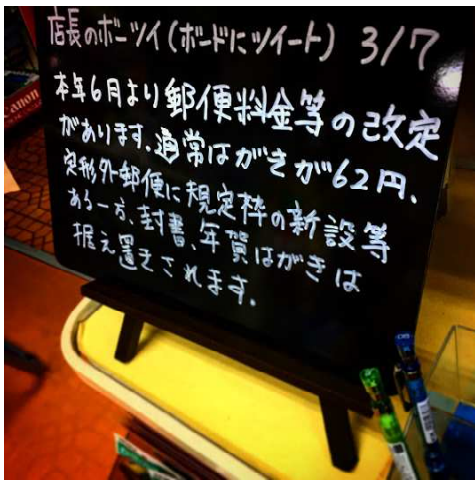 店長のボーツイ(ボードにツイート) 3/7
本年6月より郵便料金等の改定
があります。通常はがきが62円、
定形外郵便に規定枠の新設等
ある一方、封書、年賀はがきは
据え置きされます。
Canon